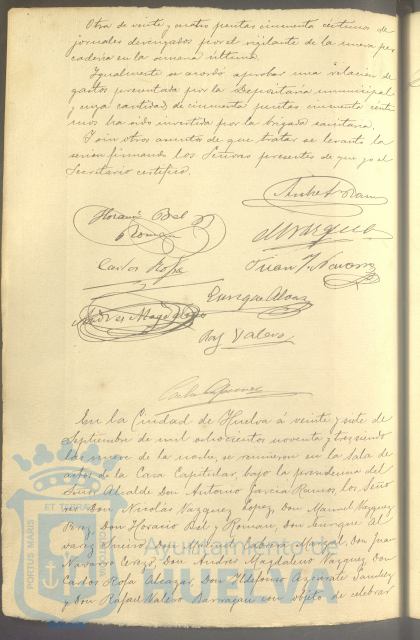 Otra de veinte y cuatro pesetas cincuenta céntimos de
jornales devengados por el vigilante de la nueva pes
caderia en la semana última.
Igualmente se acordó aprobar una relación de
gastos presentada por la Depositaría municipal
y cuya cantidad de cincuenta pesetas cincuenta cénti
mos ha sido invertida por la brigada sanitaria.
Y sin otros asuntos de que tratar se levantó la
sesion firmando los Señores presentes de que yo el
Secretario certifico.
Horacio Bel
Roman
Carlos Rofa
Juan J. Navarro
Enrique Alvar
Andres Magdaleno
Raf Valero
En la Ciudad de Huelva á veinte y siete de
Septiembre de mil ochocientos noventa y tres siendo
las nueve de la noche, se reunieron en la sala de
actos de la Casa Capitular, bajo la presidencia del
Señor Alcalde Don Antonio Garcia Ramos, los Seño
res Don Nicolás Vazquez Lopez, Don Manuel Vazquez
Perez, Don Horacio Bel y Roman, Don Enrique Al
varez Don Juan
Navarro Cerezo, Don Andrés Magdaleno Vazquez, Don
Carlos Rofa Alcazar, Don Ildefonso Azcarate
y Don Rafael Valero Barragan con objeto de celebrar
PORTUS MARIS
ET TERRAE
CUSTODIA
Ayuntamiento de
HUELVA